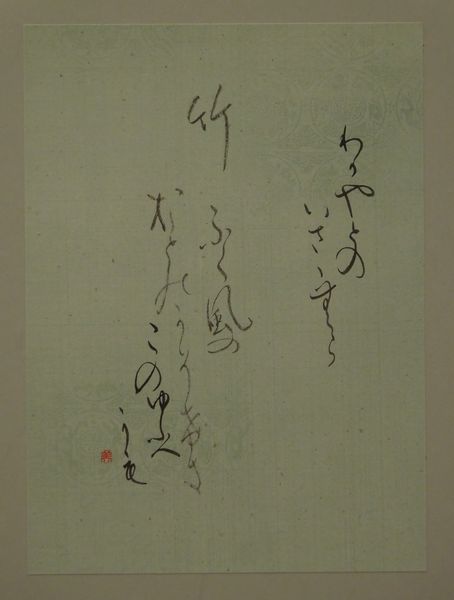 わかやとの
いさゝむら
竹
ふく風の
おとのかそけき
このゆふへ
かも